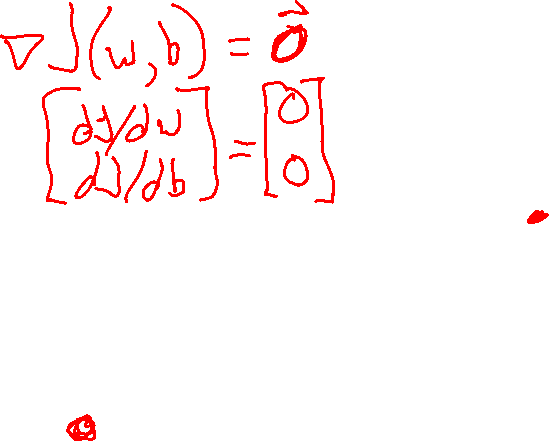 ∇J(w,b) = \vec{0}
[dJ/dw dJ/db] = [0 0]